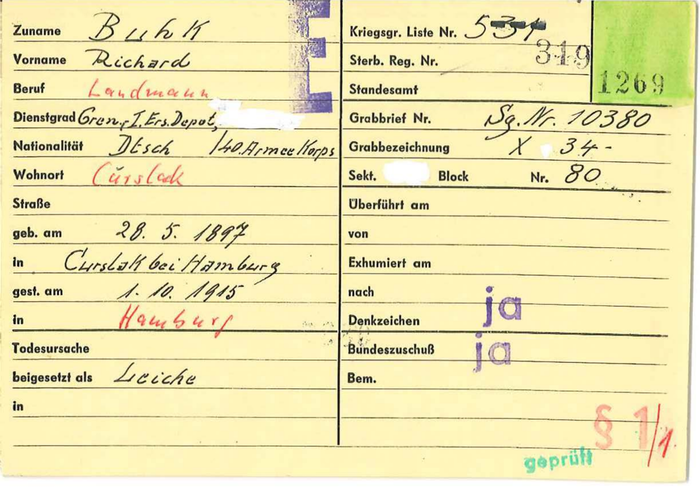 Zuname Buhk
Vorname Richard
Beruf Landmann
Dienstgrad Gren., I. Ers. Depot,
Nationalität Dtsch /40. Armee Korps
Wohnort Curslack
Straße
geb. am 28. 5. 1897
in Curslak bei Hamburg
gest. am 1. 10. 1915
in Hamburg
Todesursache
beigesetzt als Leiche
in
E
Kriegsgr. Liste Nr. 531
319
Sterb. Reg. Nr.
1269
Standesamt
Grabbrief Nr. Sg. Nr. 10380
Grabbezeichnung X 34-
Sekt. Block Nr. 80
Überführt am
von
Exhumiert am
nach
Denkzeichen ja
Bundeszuschuß ja
Bem.
§ 1/1
geprüft